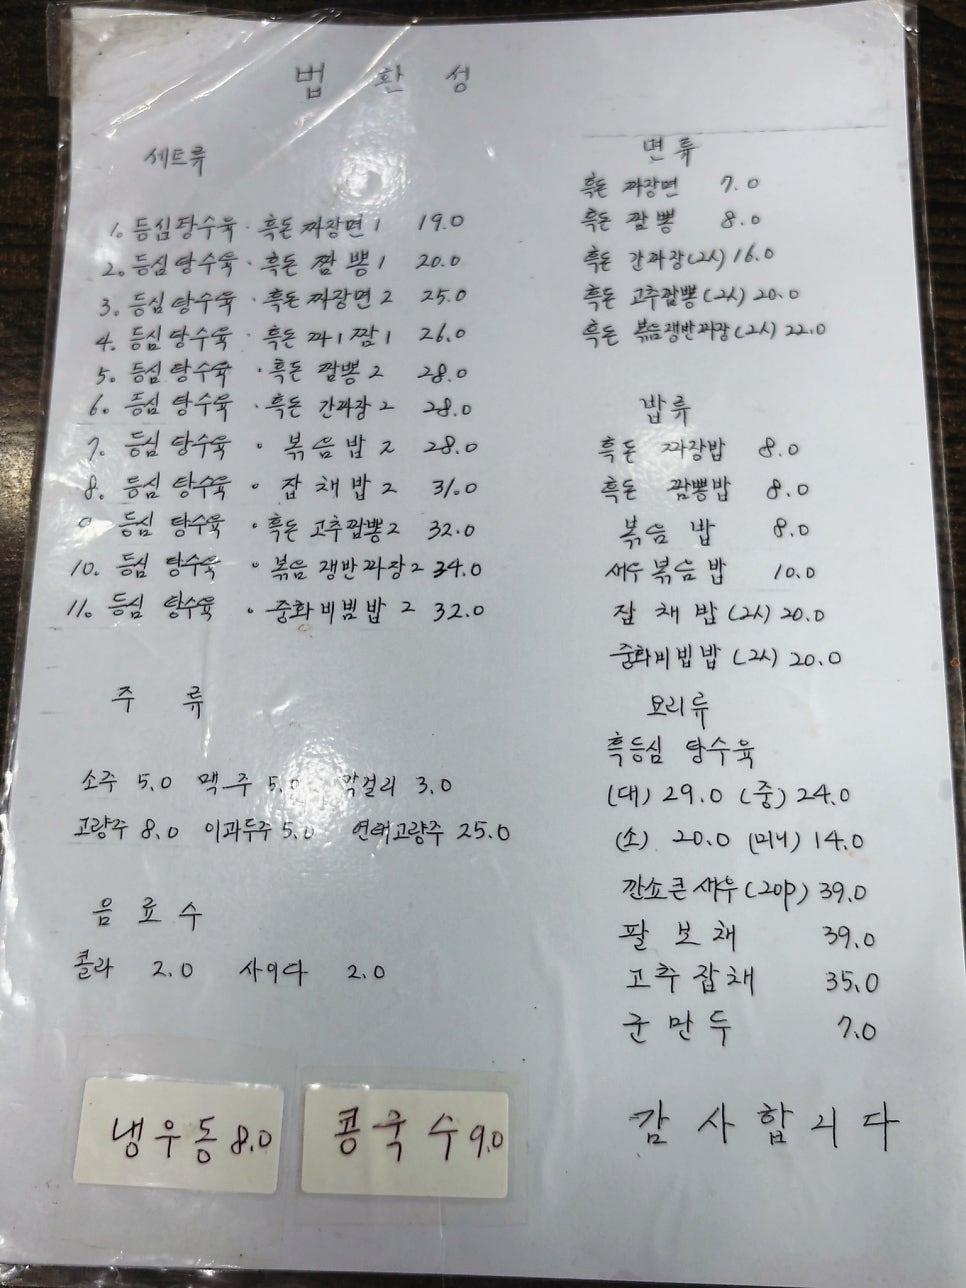 법 환 성
세트류
1. 등심탕수육 · 흑돈 짜장면 1 19.0
2. 등심탕수육 · 흑돈 짬뽕 1 20.0
3. 등심 탕수육 · 흑돈 짜장면 2 25.0
4. 등심 탕수육 · 흑돈 짜1 짬1 26.0
5. 등심 탕수육 · 흑돈 짬뽕 2 28.0
6. 등심 탕수육 · 흑돈 간짜장 2 28.0
7. 등심 탕수육 · 볶음밥 2 28.0
8. 등심 탕수육 · 잡채밥 2 31.0
9 등심 탕수육 · 흑돈 고추짬뽕 2 32.0
10. 등심 탕수육 · 볶음 쟁반짜장 2 34.0
11. 등심 탕수육 · 중화비빔밥 2 32.0
주 류
소주 5.0 맥주 5.0 막걸리 3.0
고량주 8.0 이과두주 5.0 연태고량주 25.0
음 료 수
콜라 2.0 사이다 2.0
냉우동 8.0
콩국수 9.0
면류
흑돈 짜장면 7.0
흑돈 짬뽕 8.0
흑돈 간짜장(2人) 16.0
흑돈 고추짬뽕(2人) 20.0
흑돈 볶음쟁반짜장(2人) 22.0
밥류
흑돈 짜장밥 8.0
흑돈 짬뽕밥 8.0
볶음밥 8.0
새우볶음밥 10.0
잡채밥(2人) 20.0
중화비빔밥(2人) 20.0
요리류
흑등심 탕수육
(대) 29.0 (중) 24.0
(소) 20.0 (미니) 14.0
깐쇼큰새우(20p) 39.0
팔보채 39.0
고추잡채 35.0
군만두 7.0
감사합니다